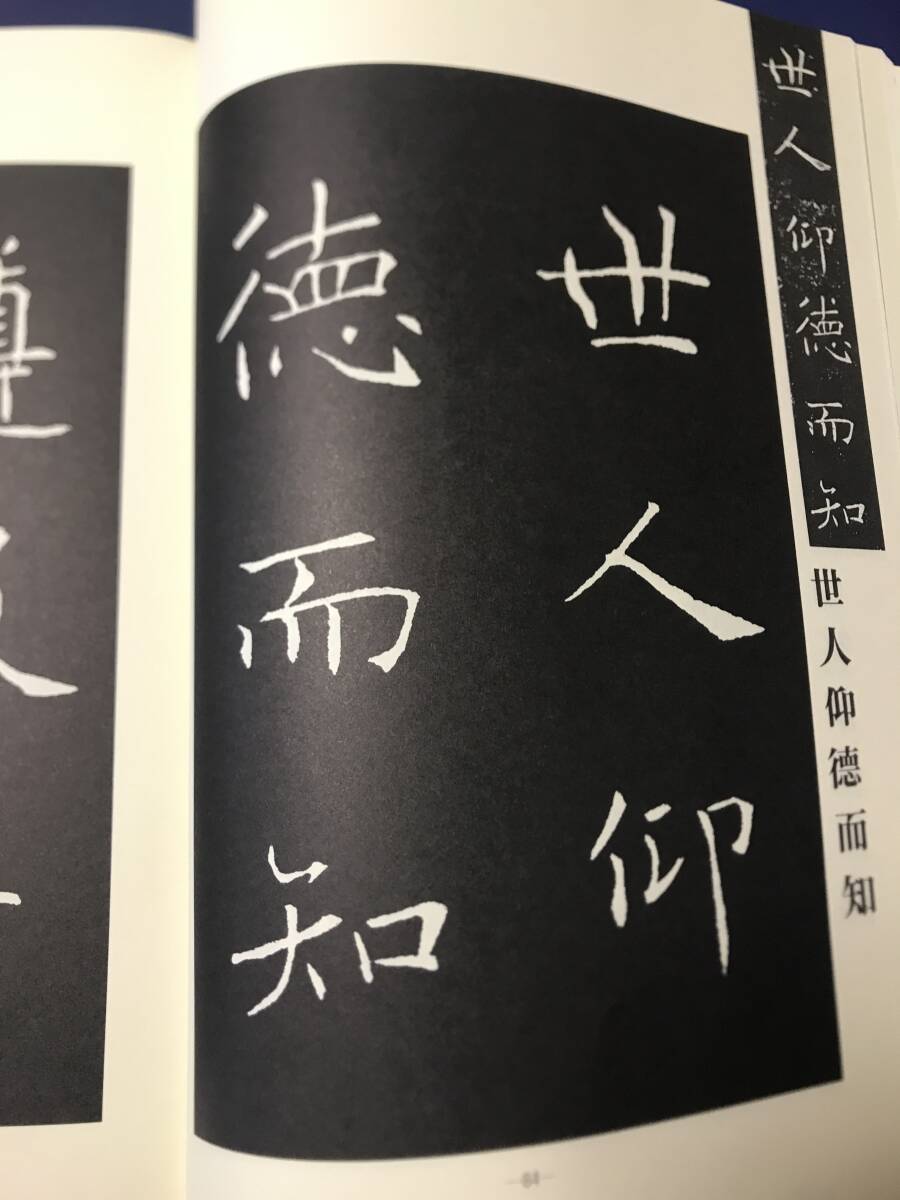 世人仰德而知
世人仰德而知
世人仰
德而知
84